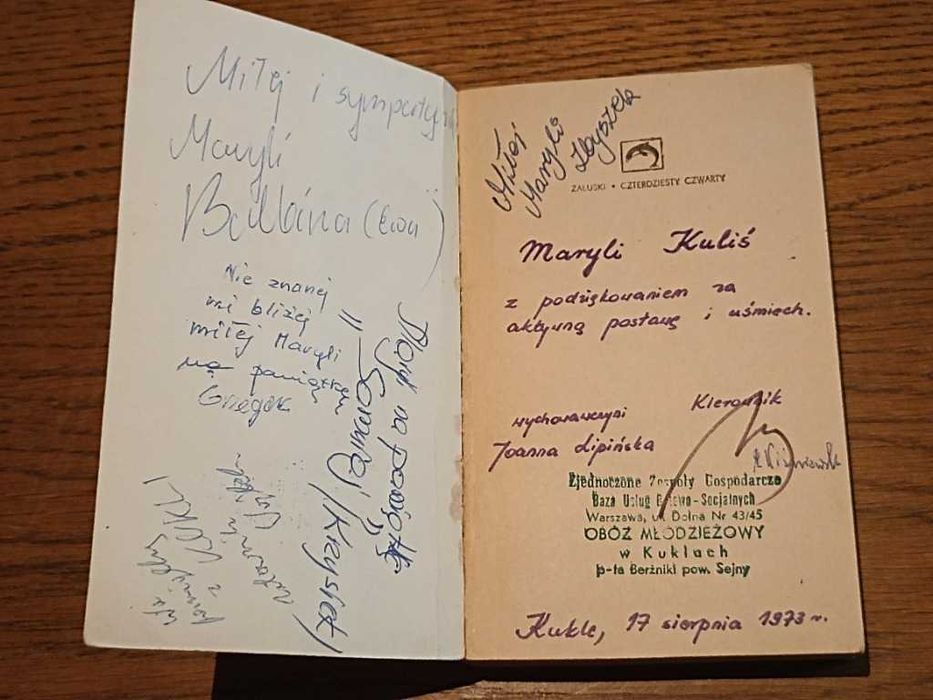 Miłej i sympatyc
Maryli
(Ewa)
Nie znanej
mi bliżej
miłej Maryli
na pamiątkę
Grzegorz
Maryli na pamiątkę
"Samuraj"
/Krzysiek/
z KUKLI
Miłej
Maryli
Zbyszek
ZAŁUSKI • CZTERDZIESTY CZWARTY
Maryli Kuliś
z podziękowaniem za
aktywną postawę i uśmiech.
wychowawczyni Kierownik
Joanna Lipińska
Zjednoczone Zespoły Gospodarcze
Baza Usług Bytowo-Socjalnych
Warszawa, ul. Dolna Nr 43/45
OBÓZ MŁODZIEŻOWY
w Kuklach
p-ta Berżniki pow. Sejny
Kukle, 17 sierpnia 1973 r.